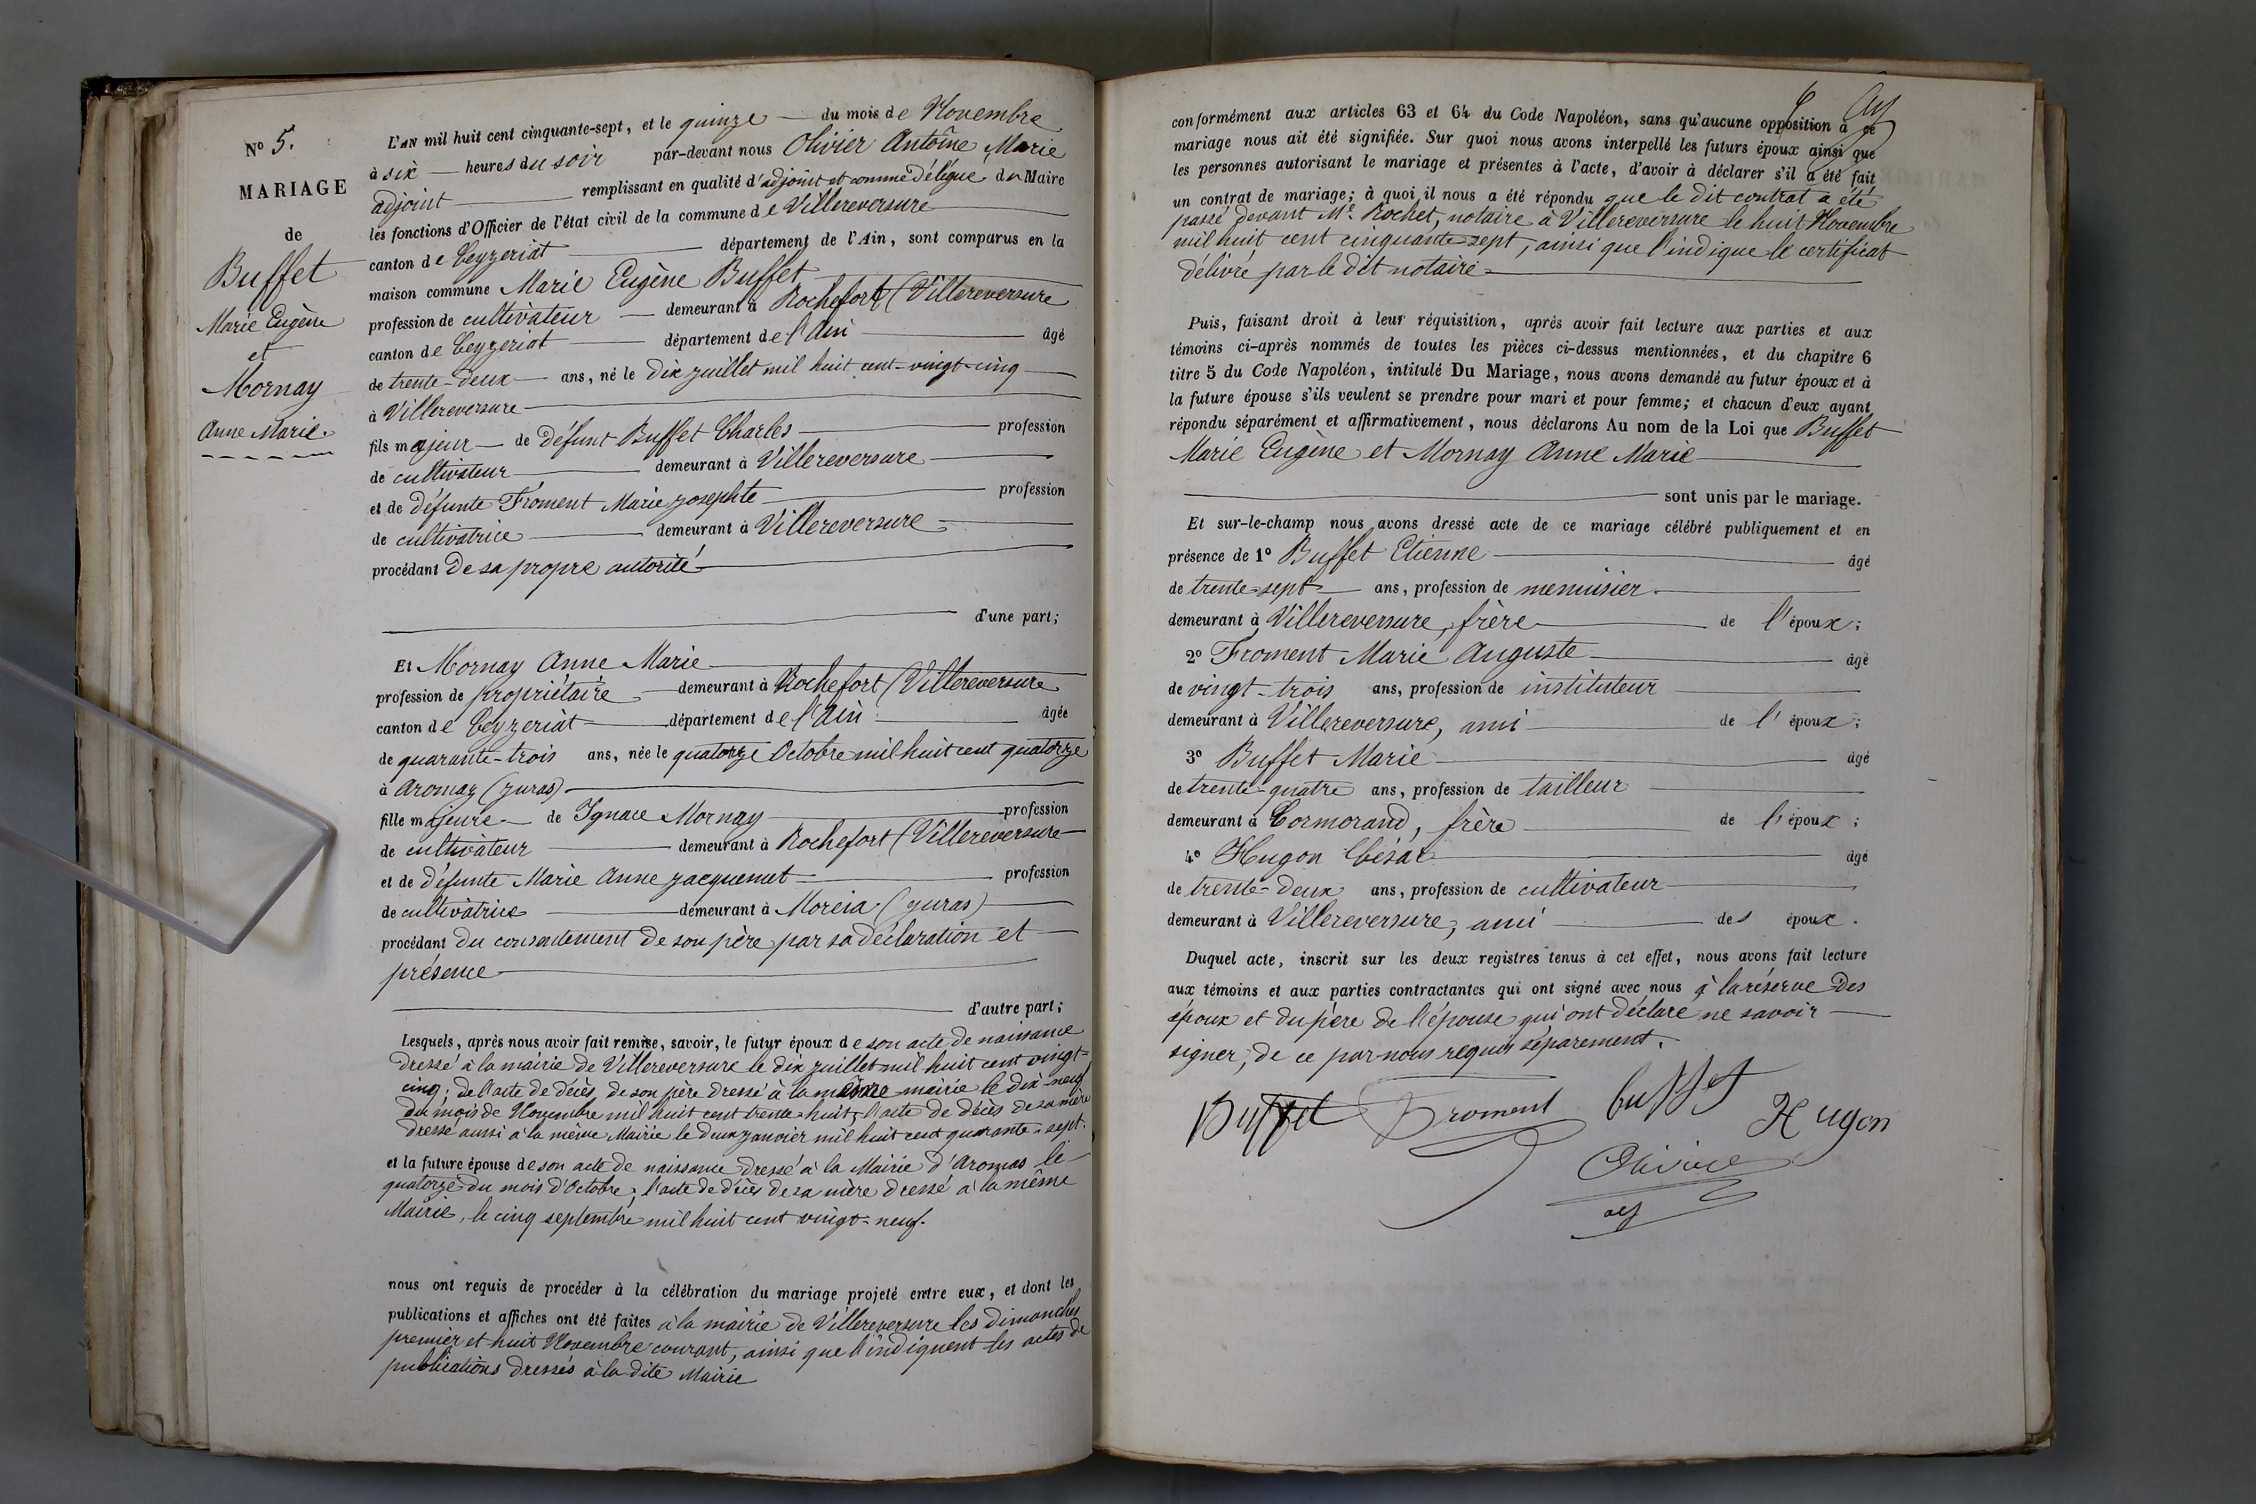 N° 5.
MARIAGE
de
Buffet
Marie Eugène
et
Mornay
Anne Marie.
L'AN mil huit cent cinquante-sept, et le quinze du mois de Novembre
à six heures du soir par-devant nous Olivier Antoine Marie
adjoint remplissant en qualité d'adjoint et comme délégué du Maire
les fonctions d'Officier de l'état civil de la commune de Villereversure
canton de Ceyzeriat département de l'Ain, sont comparus en la
maison commune Marie Eugène Buffet
profession de cultivateur demeurant à Rochefort (Villereversure
canton de Ceyzeriat département de l'Ain âgé
de trente-deux ans, né le dix juillet mil huit cent-vingt-cinq
à Villereversure
fils majeur de défunt Buffet Charles profession
de cultivateur demeurant à Villereversure
et de défunte Froment Marie Josephte profession
de cultivatrice demeurant à Villereversure
procédant de sa propre autorité
d'une part;
Et Mornay Anne Marie
profession de propriétaire demeurant à Rochefort (Villereversure
canton de Ceyzeriat département de l'Ain âgée
de quarante-trois ans, née le quatorze Octobre mil huit cent quatorze
à Aromaz (juras)
fille majeure de Ignace Mornay profession
de cultivateur demeurant à Rochefort (Villereversure
et de défunte Marie Anne Jacquemet profession
de cultivatrice demeurant à Morcia (juras)
procédant du consentement de son père par sa déclaration et
présence
d'autre part;
Lesquels, après nous avoir fait remise, savoir, le futur époux de son acte de naissance
dressé à la mairie de Villereversure le dix juillet mil huit cent vingt-
cinq; de l'acte de décès de son père dressé à la même mairie le dix-neuf
du mois de Novembre mil huit cent trente-huit; l'acte de décès de sa mère
dressé aussi à la même Mairie le deux janvier mil huit cent quarante-sept.
et la future épouse de son acte de naissance dressé à la Mairie d'Aromas le
quatorze du mois d'Octobre; l'acte de décès de sa mère dressé à la même
Mairie, le cinq septembre mil huit cent vingt-neuf.
nous ont requis de procéder à la célébration du mariage projeté entre eux, et dont les
publications et affiches ont été faites à la mairie de Villereversure les dimanches
premier et huit Novembre courant, ainsi que l'indiquent les actes de
publications dressés à la dite Mairie
conformément aux articles 63 et 64 du Code Napoléon, sans qu'aucune opposition à ce
mariage nous ait été signifiée. Sur quoi nous avons interpellé les futurs époux ainsi que
les personnes autorisant le mariage et présentes à l'acte, d'avoir à déclarer s'il a été fait
un contrat de mariage; à quoi il nous a été répondu que le dit contrat a été
passé devant Me. Rochet, notaire à Villereversure le huit Novembre
mil huit cent cinquante-sept, ainsi que l'indique le certificat
délivré par le dit notaire
Puis, faisant droit à leur réquisition, après avoir fait lecture aux parties et aux
témoins ci-après nommés de toutes les pièces ci-dessus mentionnées, et du chapitre 6
titre 5 du Code Napoléon, intitulé Du Mariage, nous avons demandé au futur époux et à
la future épouse s'ils veulent se prendre pour mari et pour femme; et chacun d'eux ayant
répondu séparément et affirmativement, nous déclarons Au nom de la Loi que Buffet
Marie Eugène et Mornay Anne Marie
sont unis par le mariage.
Et sur-le-champ nous avons dressé acte de ce mariage célébré publiquement et en
présence de 1° Buffet Etienne âgé
de trente-sept ans, profession de menuisier
demeurant à Villereversure, frère de l'époux;
2° Froment Marie Auguste âgé
de vingt-trois ans, profession de instituteur
demeurant à Villereversure, ami de l'époux;
3° Buffet Marie âgé
de trente-quatre ans, profession de tailleur
demeurant à Cormorand, frère de l'époux;
4° Hugon César âgé
de trente-deux ans, profession de cultivateur
demeurant à Villereversure, ami des époux.
Duquel acte, inscrit sur les deux registres tenus à cet effet, nous avons fait lecture
aux témoins et aux parties contractantes qui ont signé avec nous à la réserve des
époux et du père de l'épouse qui ont déclaré ne savoir
signer, de ce par nous requis séparement.
Buffet Froment buffet Hugon
Olivier